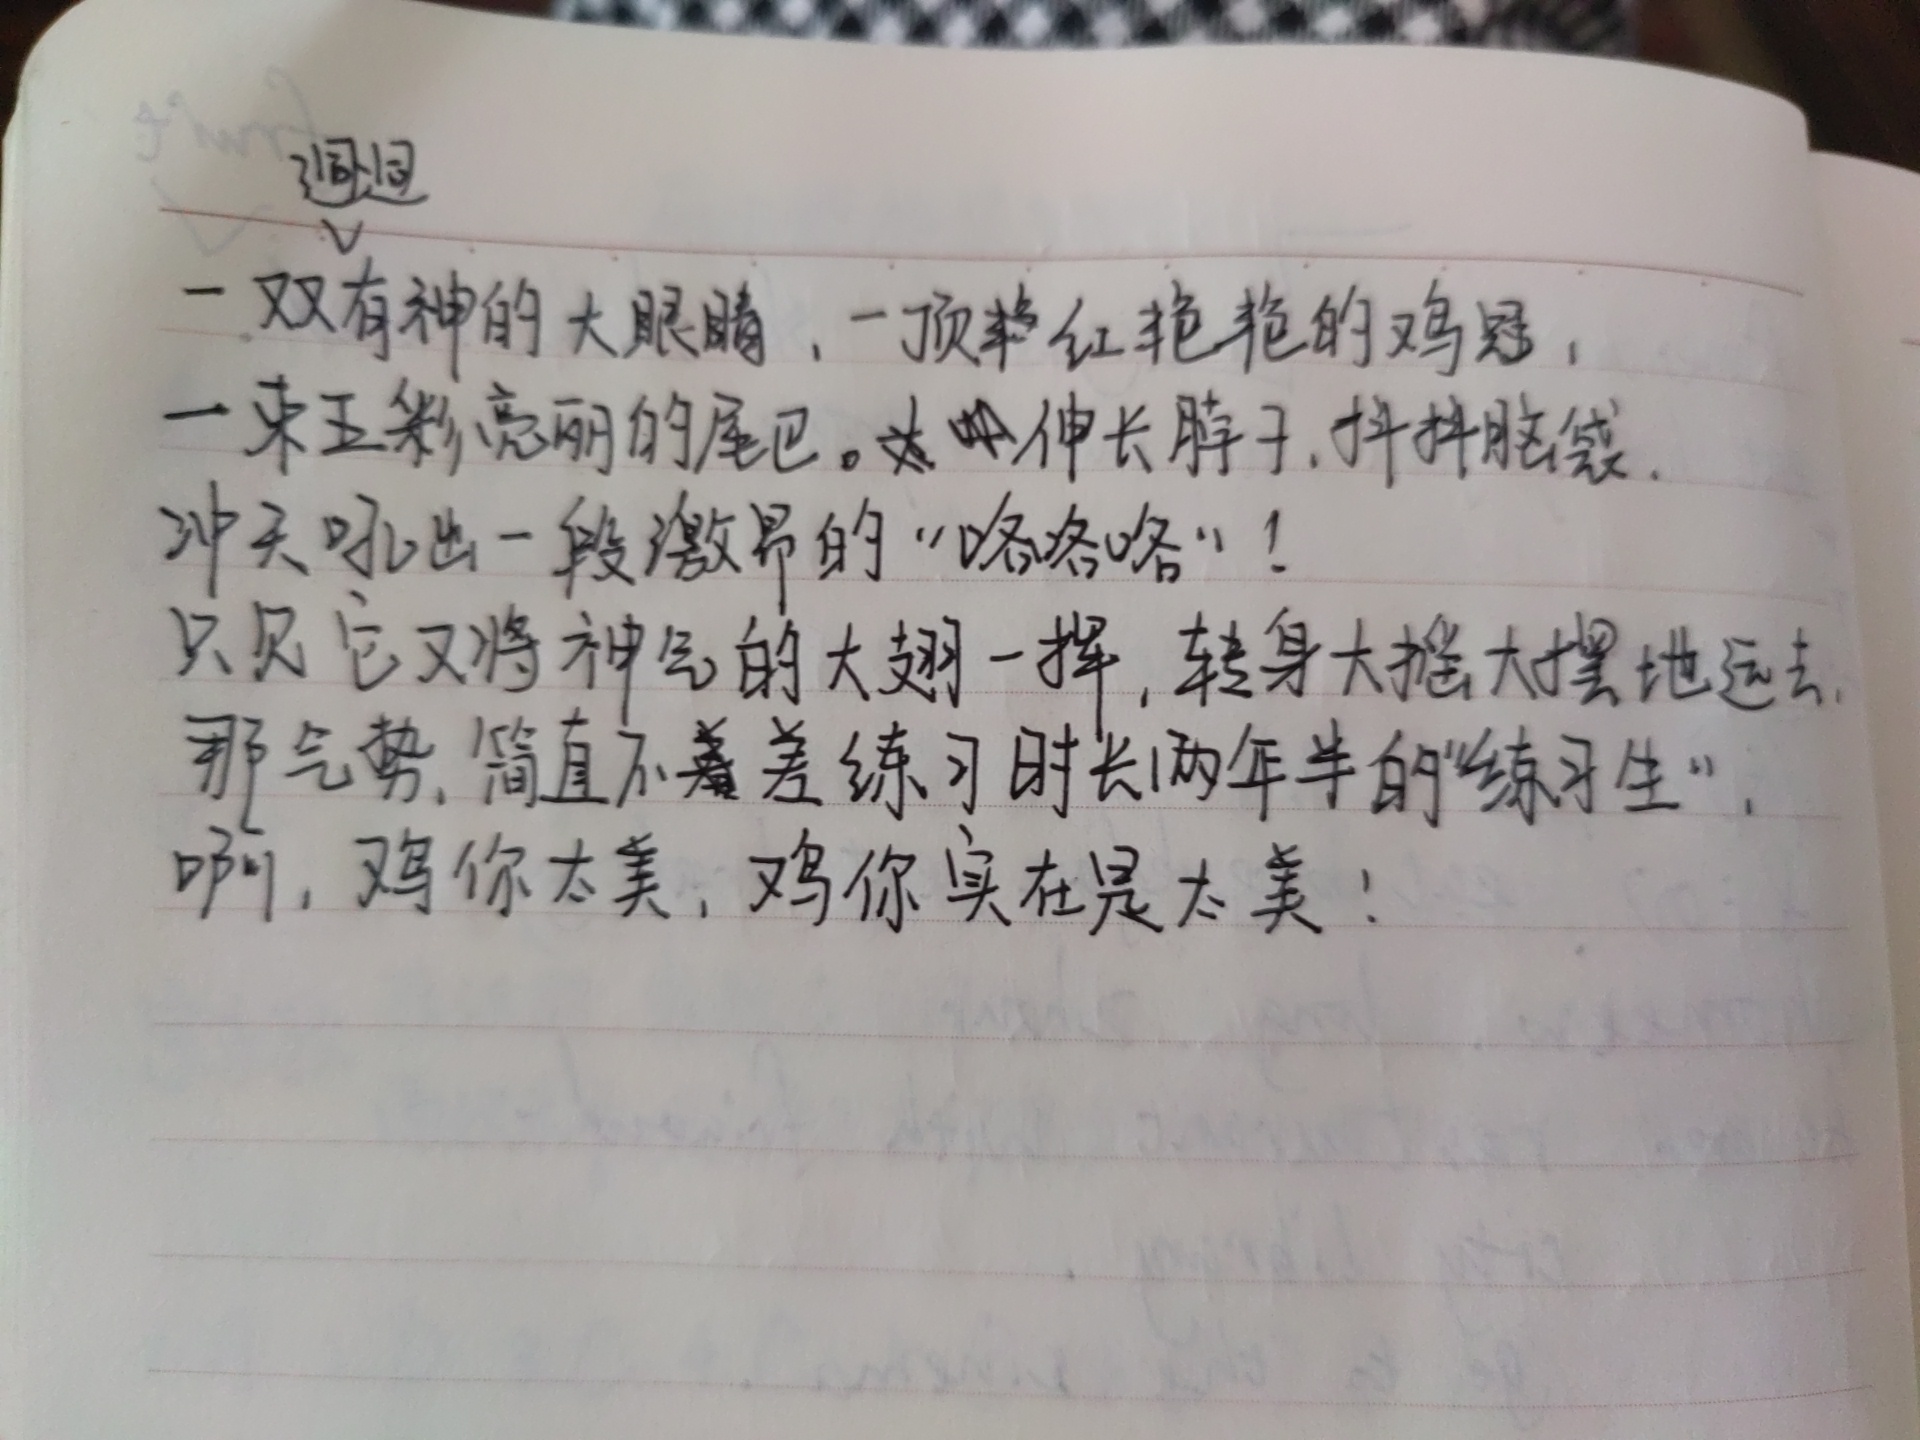 迥迥
一双有神的大眼睛，一顶红艳艳的鸡冠，
一束五彩亮丽的尾巴。伸长脖子，抖抖脑袋，
冲天吼出一段激昂的“咯咯咯”！
只见它又将神气的大翅一挥，转身大摇大摆地远去，
那气势，简直不差练习时长两年半的“练习生”，
啊，鸡你太美，鸡你实在是太美！